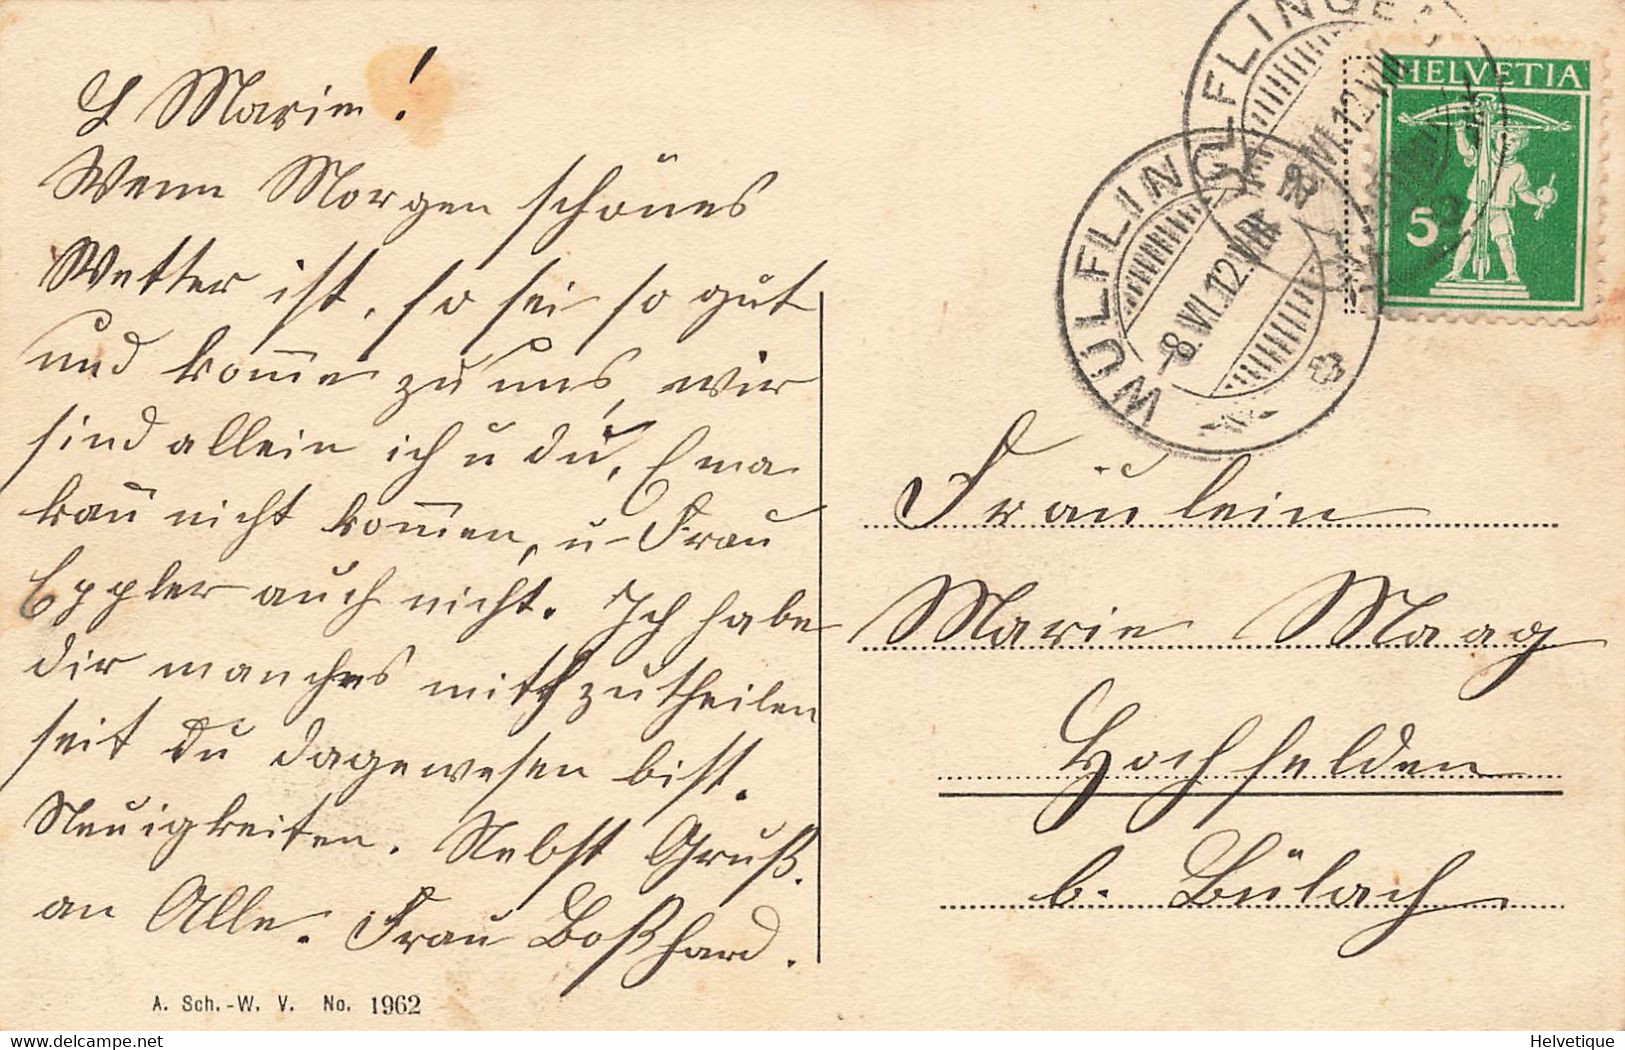 L Marie!
Wenn Morgen schönes
Wetter ist, so sei so gut
und kom̅e zu uns, wir
sind allein ich u du, Ema
kan̅ nicht kom̅en, u- Frau
Eppler auch nicht. Ich habe
dir manches mitzutheilen
seit du dagewesen bist.
Neuigkeiten. Nebst Gruß.
an Alle. Frau Boßhard.
A. Sch.-W. V. No. 1962
WÜLFLINGEN
-8.VI.12.VIII
HELVETIA
5
WÜLFLIN
-8.VI.12.VIII
Fräulein
Marie Maag
Hochfelden
b. Bülach
Helvetique
www.delcampe.net